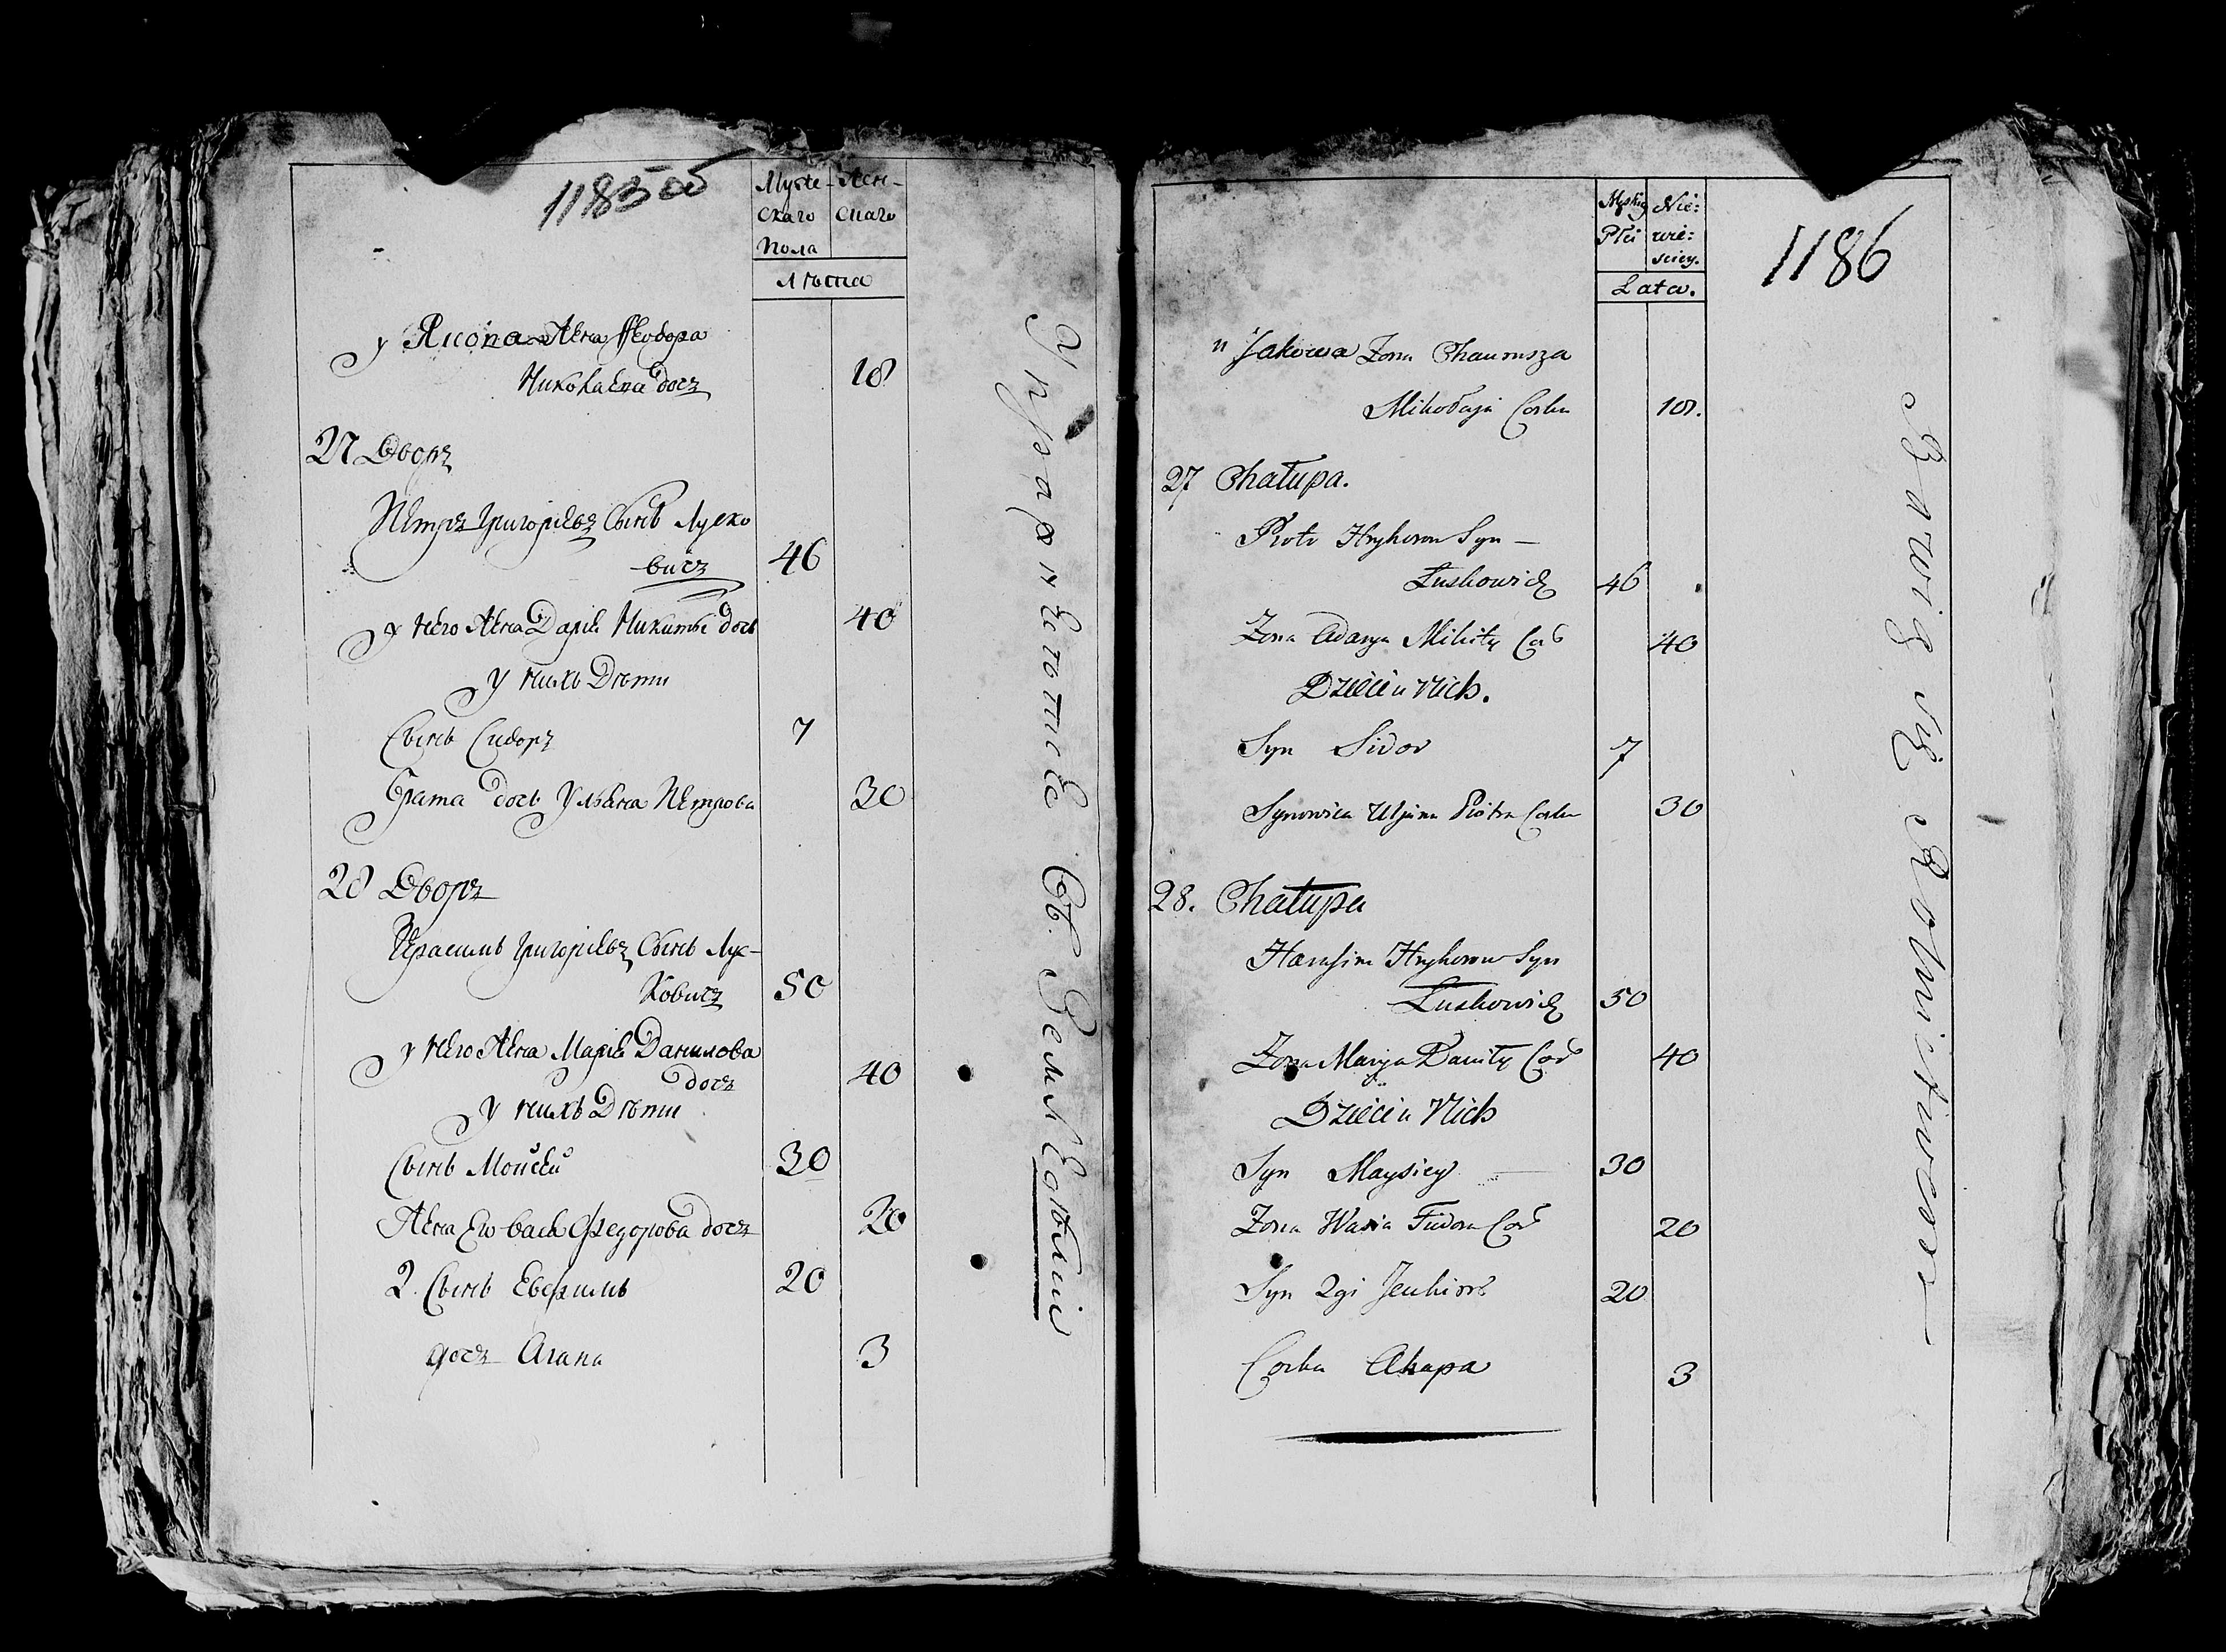 1185 об
Мужескаго Пола
Женскаго
Лѣта
у Якова Жена Феодора
Николаева дочъ
18
27 Дворъ
Петръ Григорiевъ Сынъ Луско
вичъ
46
у него Жена Дарiя Никиты дочь
40
у нихъ Дѣти
Сынъ Сидоръ
7
брата дочь Ульяна Петрова
30
28 Дворъ
Герасимъ Григорiевъ Сынъ Лус-
ковичъ
50
у него Жена Марiя Данилова
дочъ
40
у нихъ Дѣти
Сынъ Моисей
30
Жена Его Васа Федорова дочъ
20
2. Сынъ Евфимъ
20
дочъ Агапа
3
Управителъ
1186
Męskiey Płci
Niewieściey.
Lata.
u Jakowa Zona
Mikołaja Corka
18.
27 Chałupa.
Piotr Hryhorow Syn —
Luskowicz
46
Zona Adarya Mikity Cor
40
Dzieci u Nich.
Syn Sidor
7
Synowica Uljana Piotra Corka
30
28. Chałupa
Harasim Hryhorow Syn
Luskowicz
50
Zona Marya Daniły Cor
40
Dzieci u Nich
Syn Maysiey
30
Zona Wasia Fiudora Cor
20
Syn 2gi Jeuhim
20
Corka Ahapa
3